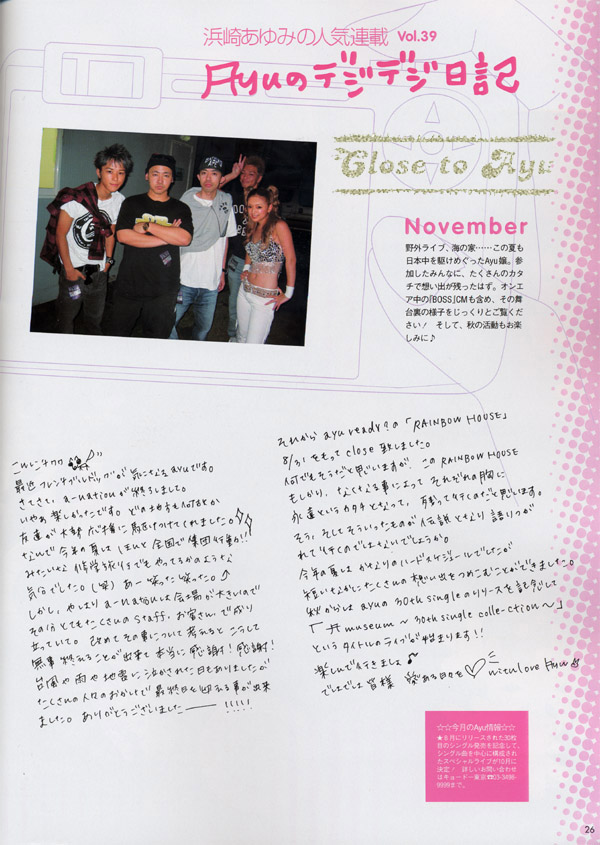 浜崎あゆみの人気連載 Vol.39
Ayuのデジデジ日記
Close to Ayu
November
野外ライブ、海の家……この夏も
日本中を駆けめぐったAyu嬢。参
加したみんなに、たくさんのカタ
チで想い出が残ったはず。オンエ
ア中の「BOSS」CMも含め、その舞
台裏の様子をじっくりとご覧くださ
い! そして、秋の活動もお楽
しみに♪
こんにチワワ
最近フレンチブルドッグが気になるayuです。
さてさて、a-nationが終了しました。
いやぁ楽しかったです。どの地方もNOTEとか
友達が大勢応援に駆けつけてくれました。
なんで今年の夏はほぼ全国で集団行事か!!
みたいな修学旅行でもやってるかのような
気分でした。(笑)あー笑った笑った。♪
しかし、やはりa-nationは会場が大きいので
その分とてもたくさんのstaff、お客さんで成り
立っていて。改めてその事について考えるとこうして
無事終えることが出来て本当に感謝!感謝!
台風や雨や地震に泣かされた日もありましたが
たくさんの人々のおかげで最終日を迎える事が出来
ました。ありがとうございましたー!!!!!
それから ayu ready?の「RAINBOW HOUSE」
8/31をもってclose致しました。
NOTでもそうだと思いますが、このRAINBOW HOUSE
もしかり、なくなる事によってそれぞれの胸に
永遠というカタチとなって、残って行くのだと思います。
そう、そしてそういったものが伝説となり語りつが
れて行くのではないでしょうか。
今年の夏はかなりのハードスケジュールでしたが
短いなかにたくさんの想い出をつめこむことができました。
秋からはayuの30th singleのリリースを記念して
「A museum ～30th single collection～」
というタイトルのライブが始まります!!
楽しんで行きましょ♪
ではでは皆様 愛ある日々を♡ with love Ayu
☆☆今月のAyu情報☆☆
★8月にリリースされた30枚
目のシングル発売を記念して、
シングル曲を中心に構成され
たスペシャルライブが10月に
決定! 詳しいお問い合わせ
はキョードー東京☎03-3498-
9999まで。
26